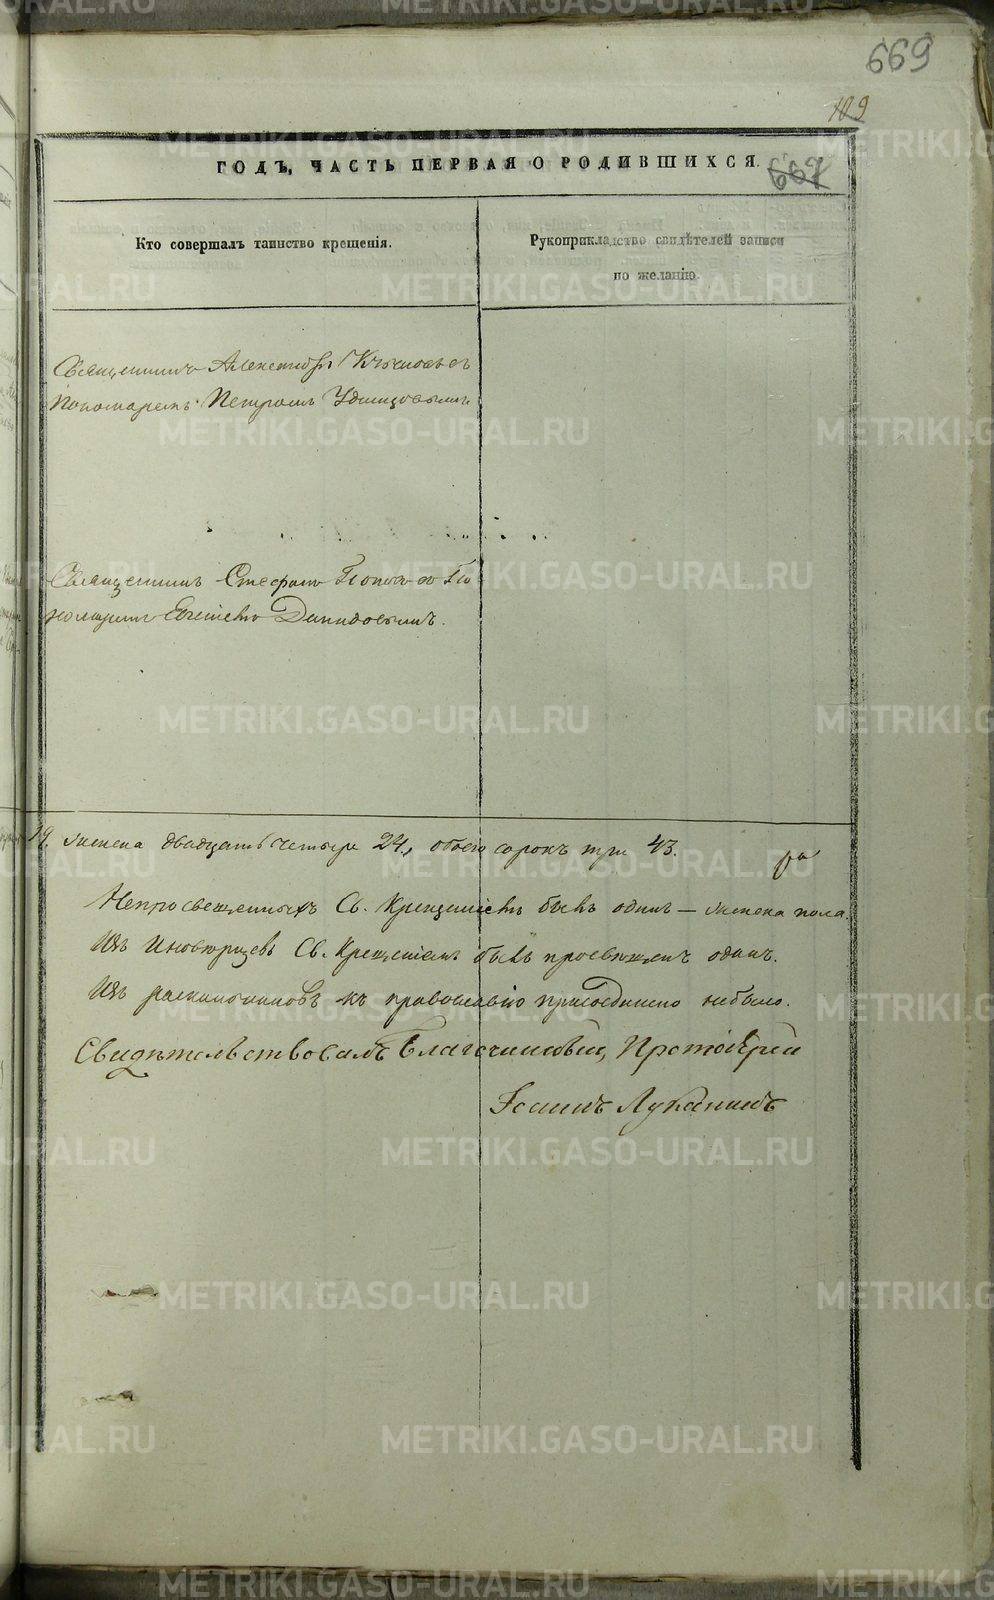 669
109
ГОДЪ, ЧАСТЬ ПЕРВАЯ О РОДИВШИХСЯ.
667
Кто совершалъ таинство крещенія.
Рукоприкладство свидѣтелей записи
по желанію.
Священникъ Александръ съ
Пономаремъ Петромъ Удинцовымъ
Священникъ Стефанъ Поповъ съ По
номаремъ Евгеніевъ Давидовымъ.
19. женска двадцать четыре 24, обоего сорокъ три 43.
Непросвещенныхъ Св. Крещеніемъ бывъ одинъ — женска пола.
Изъ Иновѣрцевъ Св. Крещеніемъ былъ просвѣщенъ одинъ.
Изъ раскольниковъ къ православію присоединено небыло.
Свидѣтельствовалъ Благочинный, Протоіерей
Іоаннъ Луканинъ
METRIKI.GASO-URAL.RU